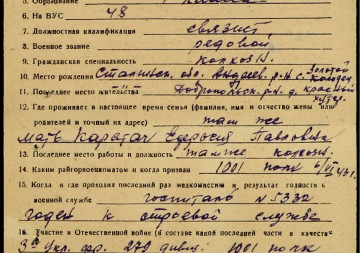 5. Образование
6. На ВУС 48
7. Должностная квалификация связист
8. Военное звание рядовой
9. Гражданская специальность колхозн.
10. Место рождения Сталинск. обл. Андреев. р-н с. Золотой Колодез
11. Последнее место жительства Добропольск. р-н д. Красный хутор
12. Где проживает в настоящее время семья (фамилия, имя и отчество жены или
родителей и точный их адрес) там же
мать Каратач Павловна
13. Последнее место работы и должность там же колхозн.
14. Каким райгорвоенкоматом и когда призван 1001 полк 6/VI 43 г.
15. Когда и где проходил последний раз медкомиссию и результат годности к
военной службе госпиталь N 5332
годен к строевой службе
16. Участие в Отечественной войне (в составе какой последней части в качеств
3й Укр. фр. 279 дивиз. 1001 полк